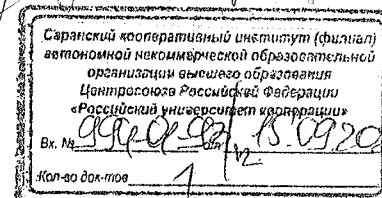 Саранский кооперативный институт (филиал)
автономной некоммерческой образовательной
организации высшего образования
Центросоюза Российской Федерации
«Российский университет кооперации»
Вх. № 15.09.20
Кол-во док-тов 1